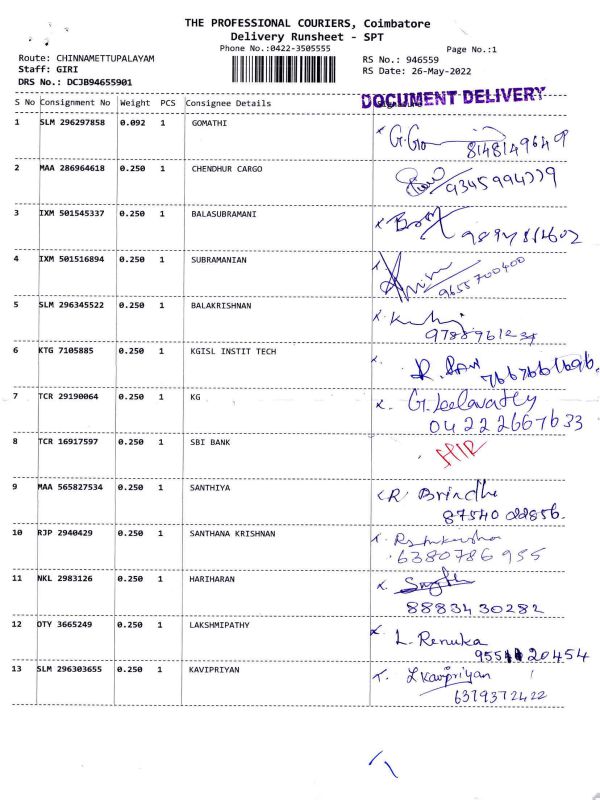 THE PROFESSIONAL COURIERS, Coimbatore
Delivery Runsheet - SPT
Phone No.:0422-3505555
Page No.:1
Route: CHINNAMETTUPALAYAM
RS No.: 946559
Staff: GIRI
RS Date: 26-May-2022
DRS No.: DCJB94655901
S No Consignment No Weight PCS Consignee Details
DOCUMENT DELIVERY
1 SLM 296297858 0.092 1 GOMATHI
8148149649
2 MAA 286964618 0.250 1 CHENDHUR CARGO
3 IXM 501545337 0.250 1 BALASUBRAMANI
4 IXM 501516894 0.250 1 SUBRAMANIAN
9655700400
5 SLM 296345522 0.250 1 BALAKRISHNAN
9788961234
6 KTG 7105885 0.250 1 KGISL INSTIT TECH
7 TCR 29190064 0.250 1 KG
G. Leelavathy
04222667633
8 TCR 16917597 0.250 1 SBI BANK
9 MAA 565827534 0.250 1 SANTHIYA
R Brindha
87540 22856.
10 RJP 2940429 0.250 1 SANTHANA KRISHNAN
6380786955
11 NKL 2983126 0.250 1 HARIHARAN
8883430282
12 OTY 3665249 0.250 1 LAKSHMIPATHY
L. Renuka
13 SLM 296303655 0.250 1 KAVIPRIYAN
L Kavipriyan
6379372422